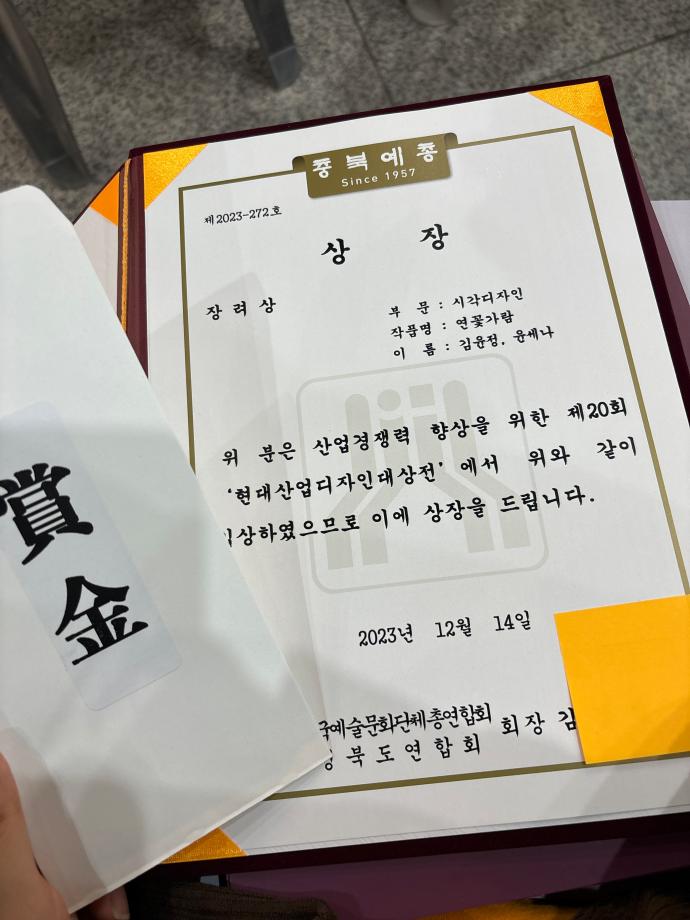 충북예총
Since 1957
제2023-272호
상 장
장려상
부 문 : 시각디자인
작품명 : 연꽃가람
이 름 : 김윤정, 윤세나
위 분은 산업경쟁력 향상을 위한 제20회
‘현대산업디자인대상전’ 에서 위와 같이
상하였으므로 이에 상장을 드립니다.
2023년 12월 14일
국예술문화단체총연합회 회장 김
북도연합회
賞金